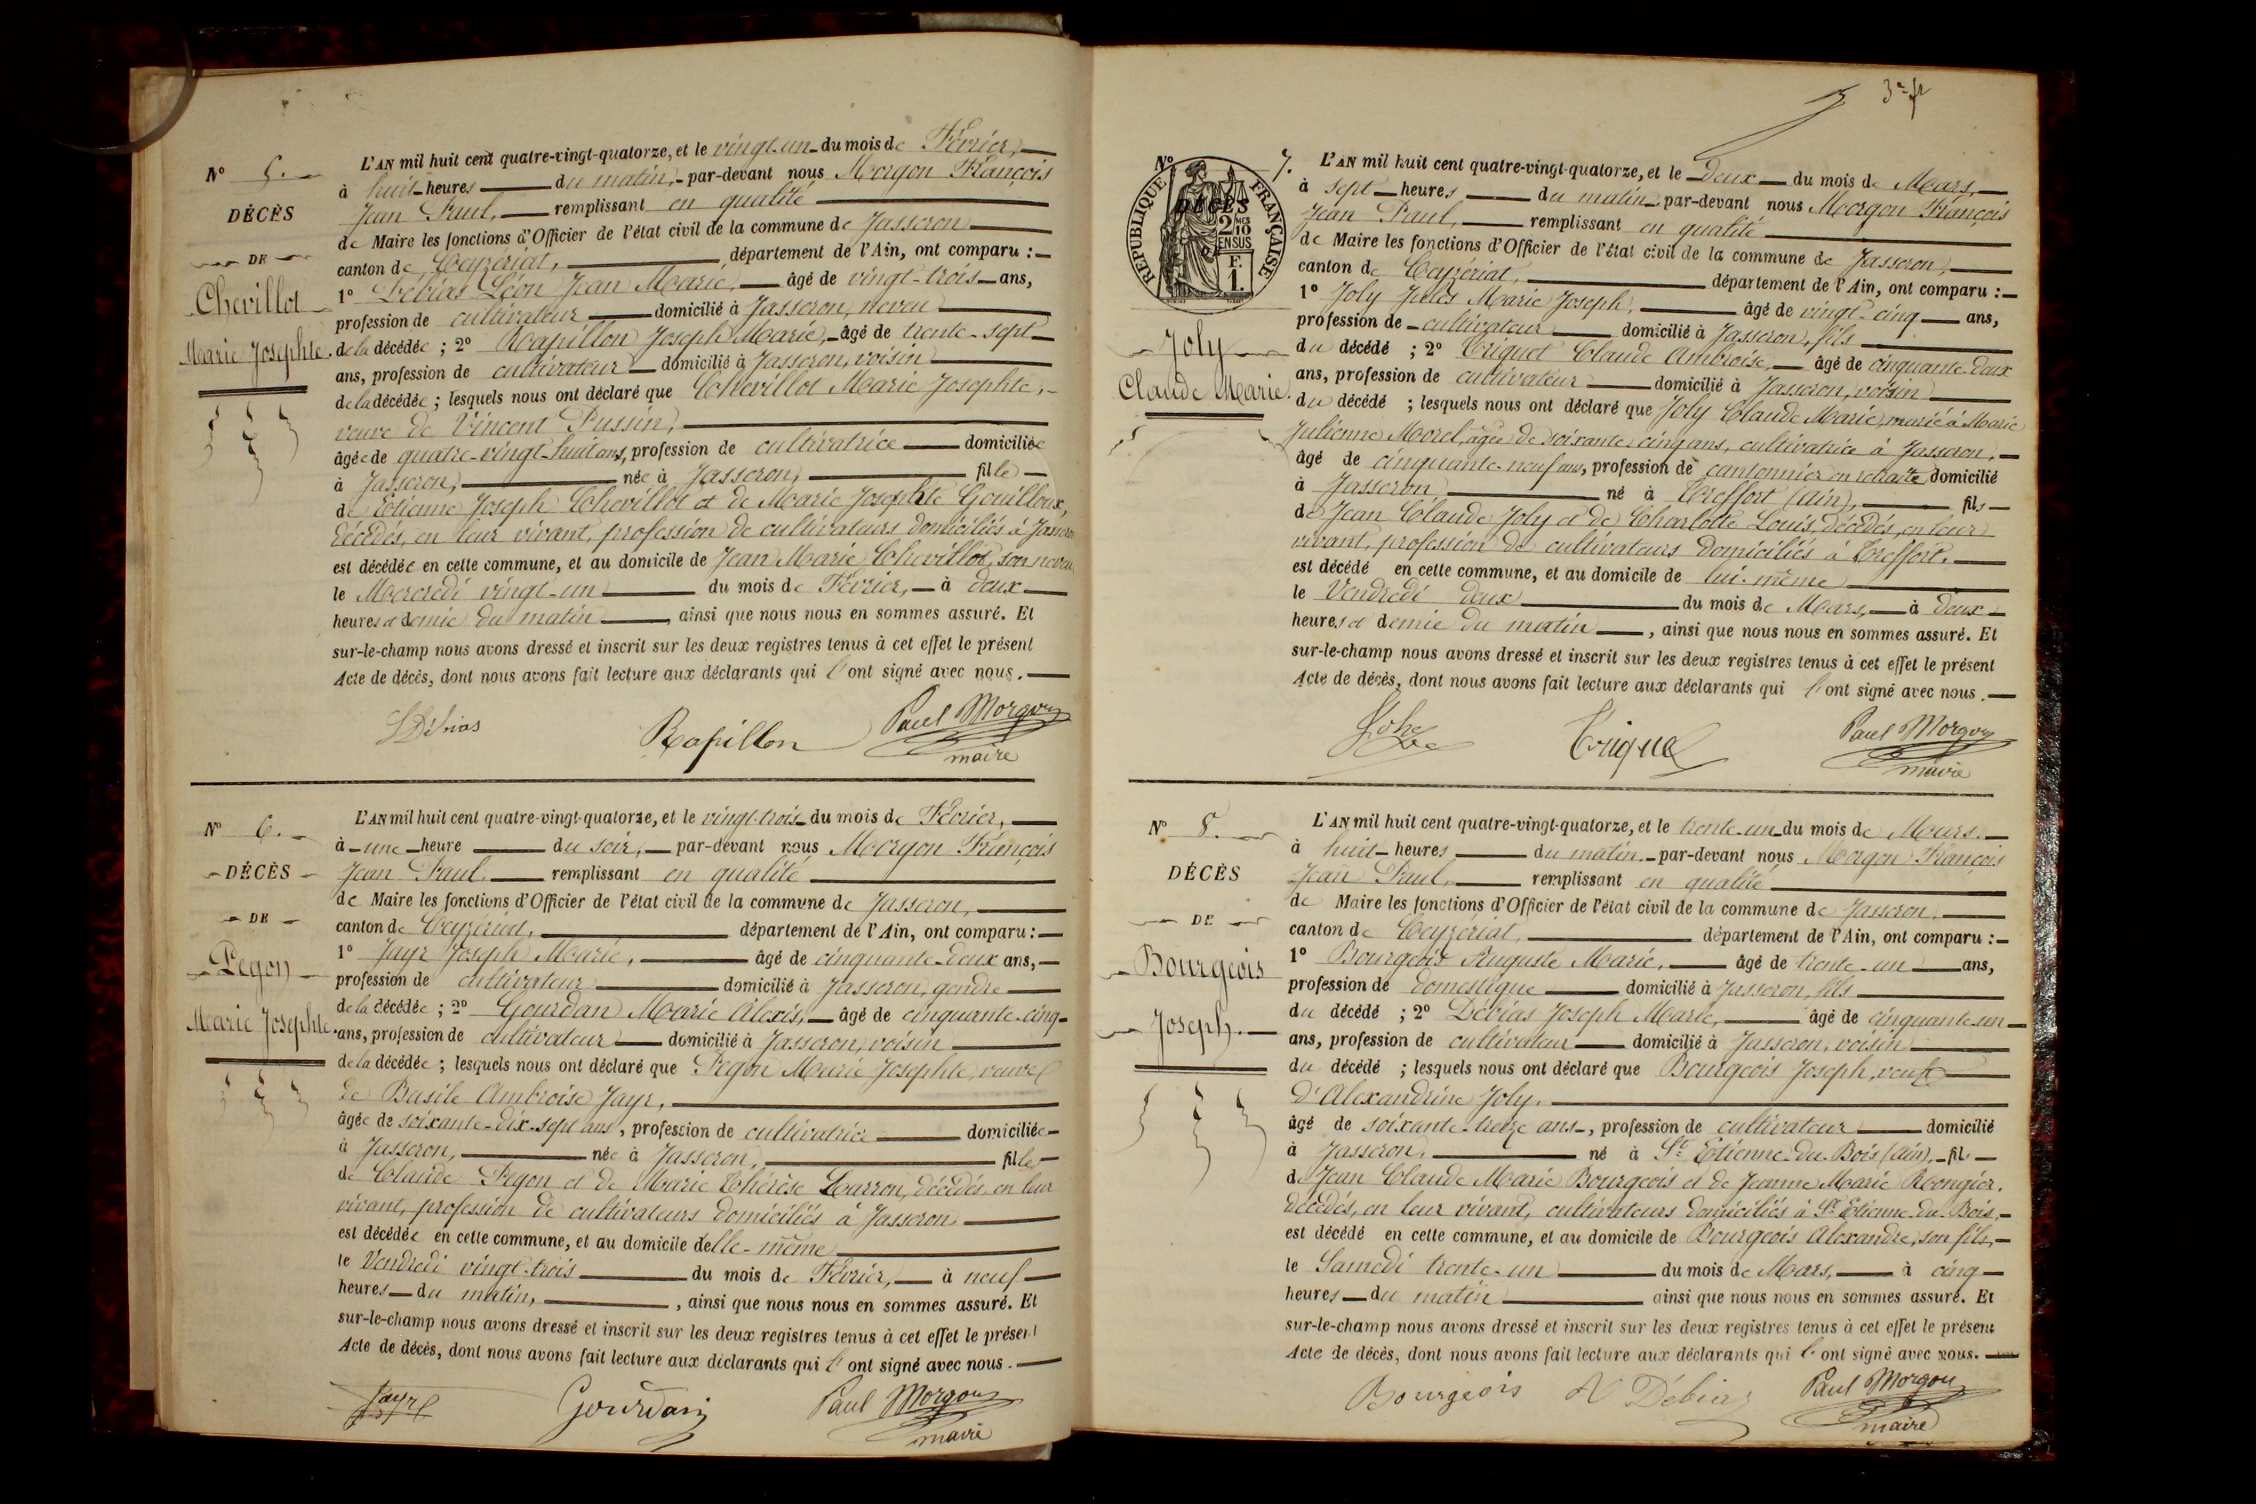 N° 5.
DÉCÈS
DE
Chevillot
Marie Josephte.
L'AN mil huit cent quatre-vingt-quatorze, et le vingt-un du mois de Février,
à huit heures du matin, par-devant nous Morgon François
Jean Paul, remplissant en qualité
de Maire les fonctions d'Officier de l'état civil de la commune de Jasseron
canton de Ceyzériat, département de l'Ain, ont comparu :
1° Débias Léon Jean Marie, âgé de vingt-trois ans,
profession de cultivateur domicilié à Jasseron, neveu
de la décédée ; 2° Rapillon Joseph Marie, âgé de trente-sept
ans, profession de cultivateur domicilié à Jasseron, voisin
de la décédée ; lesquels nous ont déclaré que Chevillot Marie Josephte,
veuve de Vincent Pussin,
âgée de quatre-vingt-huit ans, profession de cultivatrice domiciliée
à Jasseron, née à Jasseron, fille
de Etienne Joseph Chevillot et de Marie Josephte Gouilloux,
décédés, en leur vivant, profession de cultivateurs domiciliés à Jasseron
est décédée en cette commune, et au domicile de Jean Marie Chevillot, son neveu
le Mercredi vingt-un du mois de Février, à deux
heures et demie du matin, ainsi que nous nous en sommes assuré. Et
sur-le-champ nous avons dressé et inscrit sur les deux registres tenus à cet effet le présent
Acte de décès, dont nous avons fait lecture aux déclarants qui l'ont signé avec nous.
LDébias Rapillon Paul Morgon
maire
N° 6.
DÉCÈS
DE
Pegon
Marie Josephte.
L'AN mil huit cent quatre-vingt-quatorze, et le vingt-trois du mois de Février,
à une heure du soir, par-devant nous Morgon François
Jean Paul, remplissant en qualité
de Maire les fonctions d'Officier de l'état civil de la commune de Jasseron,
canton de Ceyzériat, département de l'Ain, ont comparu :
1° Jayr Joseph Marie, âgé de cinquante-deux ans,
profession de cultivateur domicilié à Jasseron, gendre
de la décédée ; 2° Gourdan Marie Alexis, âgé de cinquante-cinq
ans, profession de cultivateur domicilié à Jasseron, voisin
de la décédée ; lesquels nous ont déclaré que Pegon Marie Josephte, veuve
de Basile Ambroise Jayr,
âgée de soixante-dix-sept ans, profession de cultivatrice domiciliée
à Jasseron, née à Jasseron, fille
de Claude Pegon et de Marie Thérèse Larron, décédés en leur
vivant, profession de cultivateurs domiciliés à Jasseron,
est décédée en cette commune, et au domicile d'elle-même
le Vendredi vingt-trois du mois de Février, à neuf
heures du matin, , ainsi que nous nous en sommes assuré. Et
sur-le-champ nous avons dressé et inscrit sur les deux registres tenus à cet effet le présent
Acte de décès, dont nous avons fait lecture aux déclarants qui l'ont signé avec nous.
Jayr Gourdan Paul Morgon
maire
N° 7.
DÉCÈS
RÉPUBLIQUE FRANÇAISE
2 MES 10
EN SUS
F.
1.
Joly
Claude Marie.
L'AN mil huit cent quatre-vingt-quatorze, et le Deux du mois de Mars,
à sept heures du matin par-devant nous Morgon François
Jean Paul, remplissant en qualité
de Maire les fonctions d'Officier de l'état civil de la commune de Jasseron,
canton de Ceyzériat, département de l'Ain, ont comparu :
1° Joly Jules Marie Joseph, âgé de vingt-cinq ans,
profession de cultivateur domicilié à Jasseron, fils
du décédé ; 2° Triquet Claude Ambroise, âgé de cinquante-deux
ans, profession de cultivateur domicilié à Jasseron, voisin
du décédé ; lesquels nous ont déclaré que Joly Claude Marie, marié à Marie
Julienne Morel, âgée de soixante-cinq ans, cultivatrice à Jasseron,
âgé de cinquante-neuf ans, profession de cantonnier en retraite domicilié
à Jasseron né à Treffort (Ain), fils
de Jean Claude Joly et de Charlotte Louis, décédés, en leur
vivant, profession de cultivateurs domiciliés à Treffort,
est décédé en cette commune, et au domicile de lui-même
le Vendredi deux du mois de Mars, à deux
heures et demie du matin, ainsi que nous nous en sommes assuré. Et
sur-le-champ nous avons dressé et inscrit sur les deux registres tenus à cet effet le présent
Acte de décès, dont nous avons fait lecture aux déclarants qui l'ont signé avec nous.
Triquet Paul Morgon
maire
N° 8.
DÉCÈS
DE
Bourgeois
Joseph.
L'AN mil huit cent quatre-vingt-quatorze, et le trente-un du mois de Mars.
à huit heures du matin. par-devant nous Morgon François
Jean Paul, remplissant en qualité
de Maire les fonctions d'Officier de l'état civil de la commune de Jasseron,
canton de Ceyzériat, département de l'Ain, ont comparu :
1° Bourgeois Auguste Marie, âgé de trente-un ans,
profession de domestique domicilié à Jasseron, fils
du décédé ; 2° Débias Joseph Marie, âgé de cinquante-un
ans, profession de cultivateur domicilié à Jasseron, voisin
du décédé ; lesquels nous ont déclaré que Bourgeois Joseph, veuf
d'Alexandrine Joly,
âgé de soixante-treize ans, profession de cultivateur domicilié
à Jasseron, né à St Etienne-du-Bois (Ain), fils
de Jean Claude Marie Bourgeois et de Jeanne Marie Rongier,
décédés, en leur vivant, cultivateurs domiciliés à St Etienne-du-Bois,
est décédé en cette commune, et au domicile de Bourgeois Alexandre, son fils,
le Samedi trente-un du mois de Mars, à cinq
heures du matin ainsi que nous nous en sommes assuré. Et
sur-le-champ nous avons dressé et inscrit sur les deux registres tenus à cet effet le présent
Acte de décès, dont nous avons fait lecture aux déclarants qui l'ont signé avec nous.
Bourgeois Débias Paul Morgon
maire